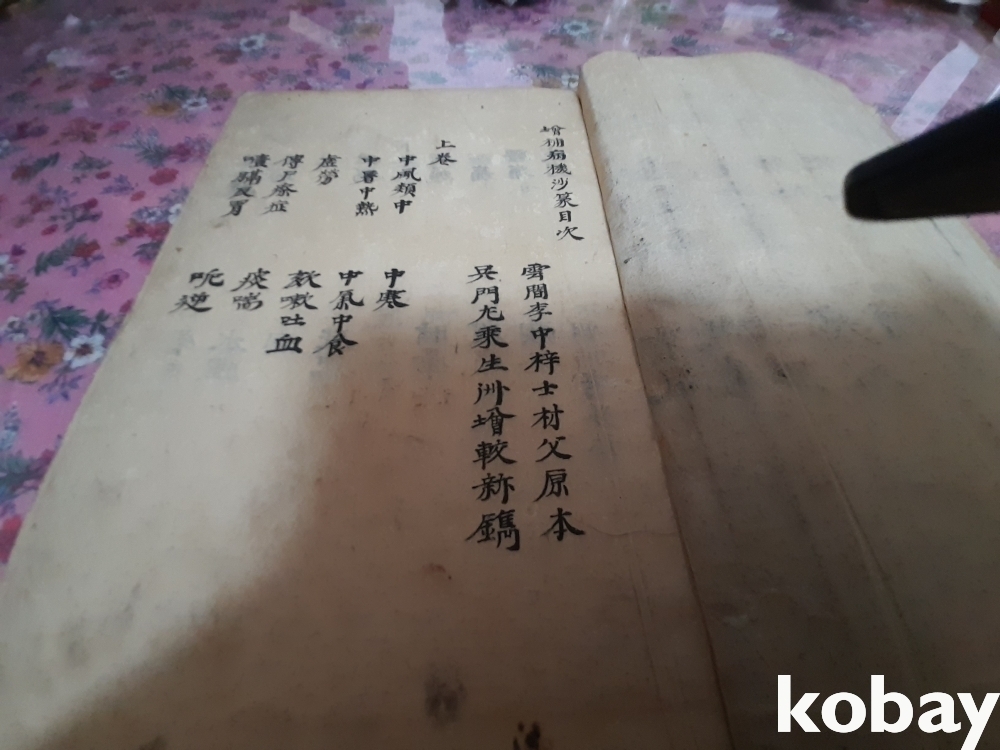 增補病機沙篆目次
雲間李中梓士材父原本
吳門尤乘生洲增較新鐫
上卷
中風類中
中寒
中暑中熱
中氣中食
虛勞
欬嗽吐血
傳尸瘵症
痰喘
噎膈反胃
呃逆
kobay